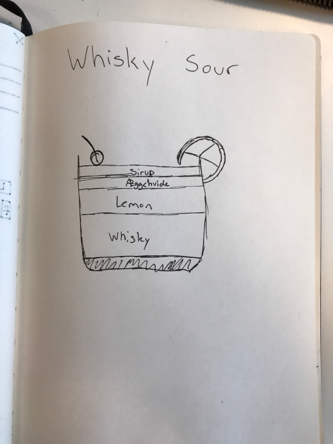 Whisky Sour
Sirup
Æggehvide
Lemon
Whisky